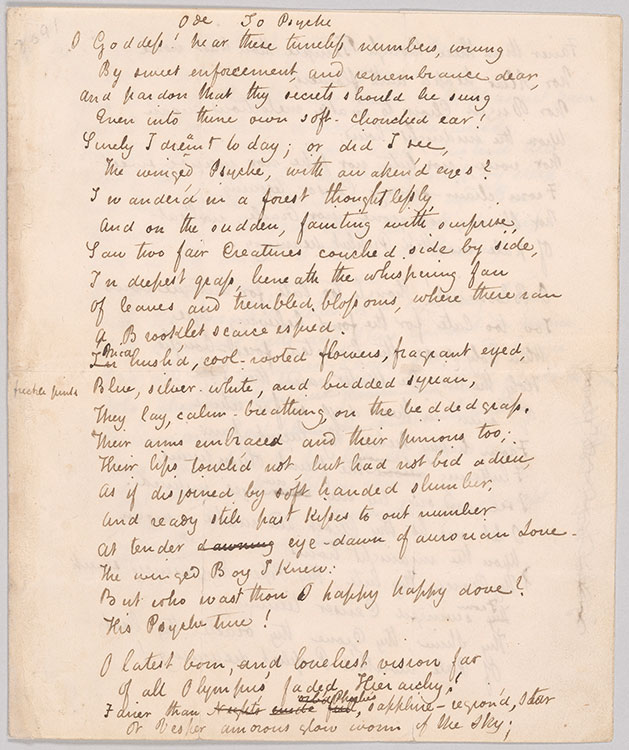 Ode To Psyche
O Goddess! hear these tuneless numbers, wrung
By sweet enforcement and remembrance dear,
And pardon that thy secrets should be sung
Even into thine own soft-chonched ear!
Surely I dreamt to day; or did I see,
The winged Psyche, with awaken'd eyes?
I wander'd in a forest thoughtlessly,
And on the sudden, fainting with surprise,
Saw two fair Creatures couched side by side,
In deepest grass, beneath the whispering fan
Of leaves and trembled blossoms, where there ran
A Brooklet scarce espied.
'Mid hush'd, cool-rooted flowers, fragrant eyed,
freckle pink'd Blue, silver-white, and budded syrian,
They lay, calm-breathing on the bedded grass.
Their arms embraced and their pinions too;
Their lips touch'd not, but had not bid adieu,
As if disjoined by soft handed slumber,
And ready still past kisses to out number
At tender dawning eye-dawn of aurorian Love.
The winged Boy I knew:
But who wast thou O happy happy dove?
His Psyche true!
O latest born, and loveliest vision far
Of all Olympus' faded Hierarchy!
orb'd Phoebe's
Fairer than sapphire-region'd, star
Or Vesper amorous glow worm of the sky;